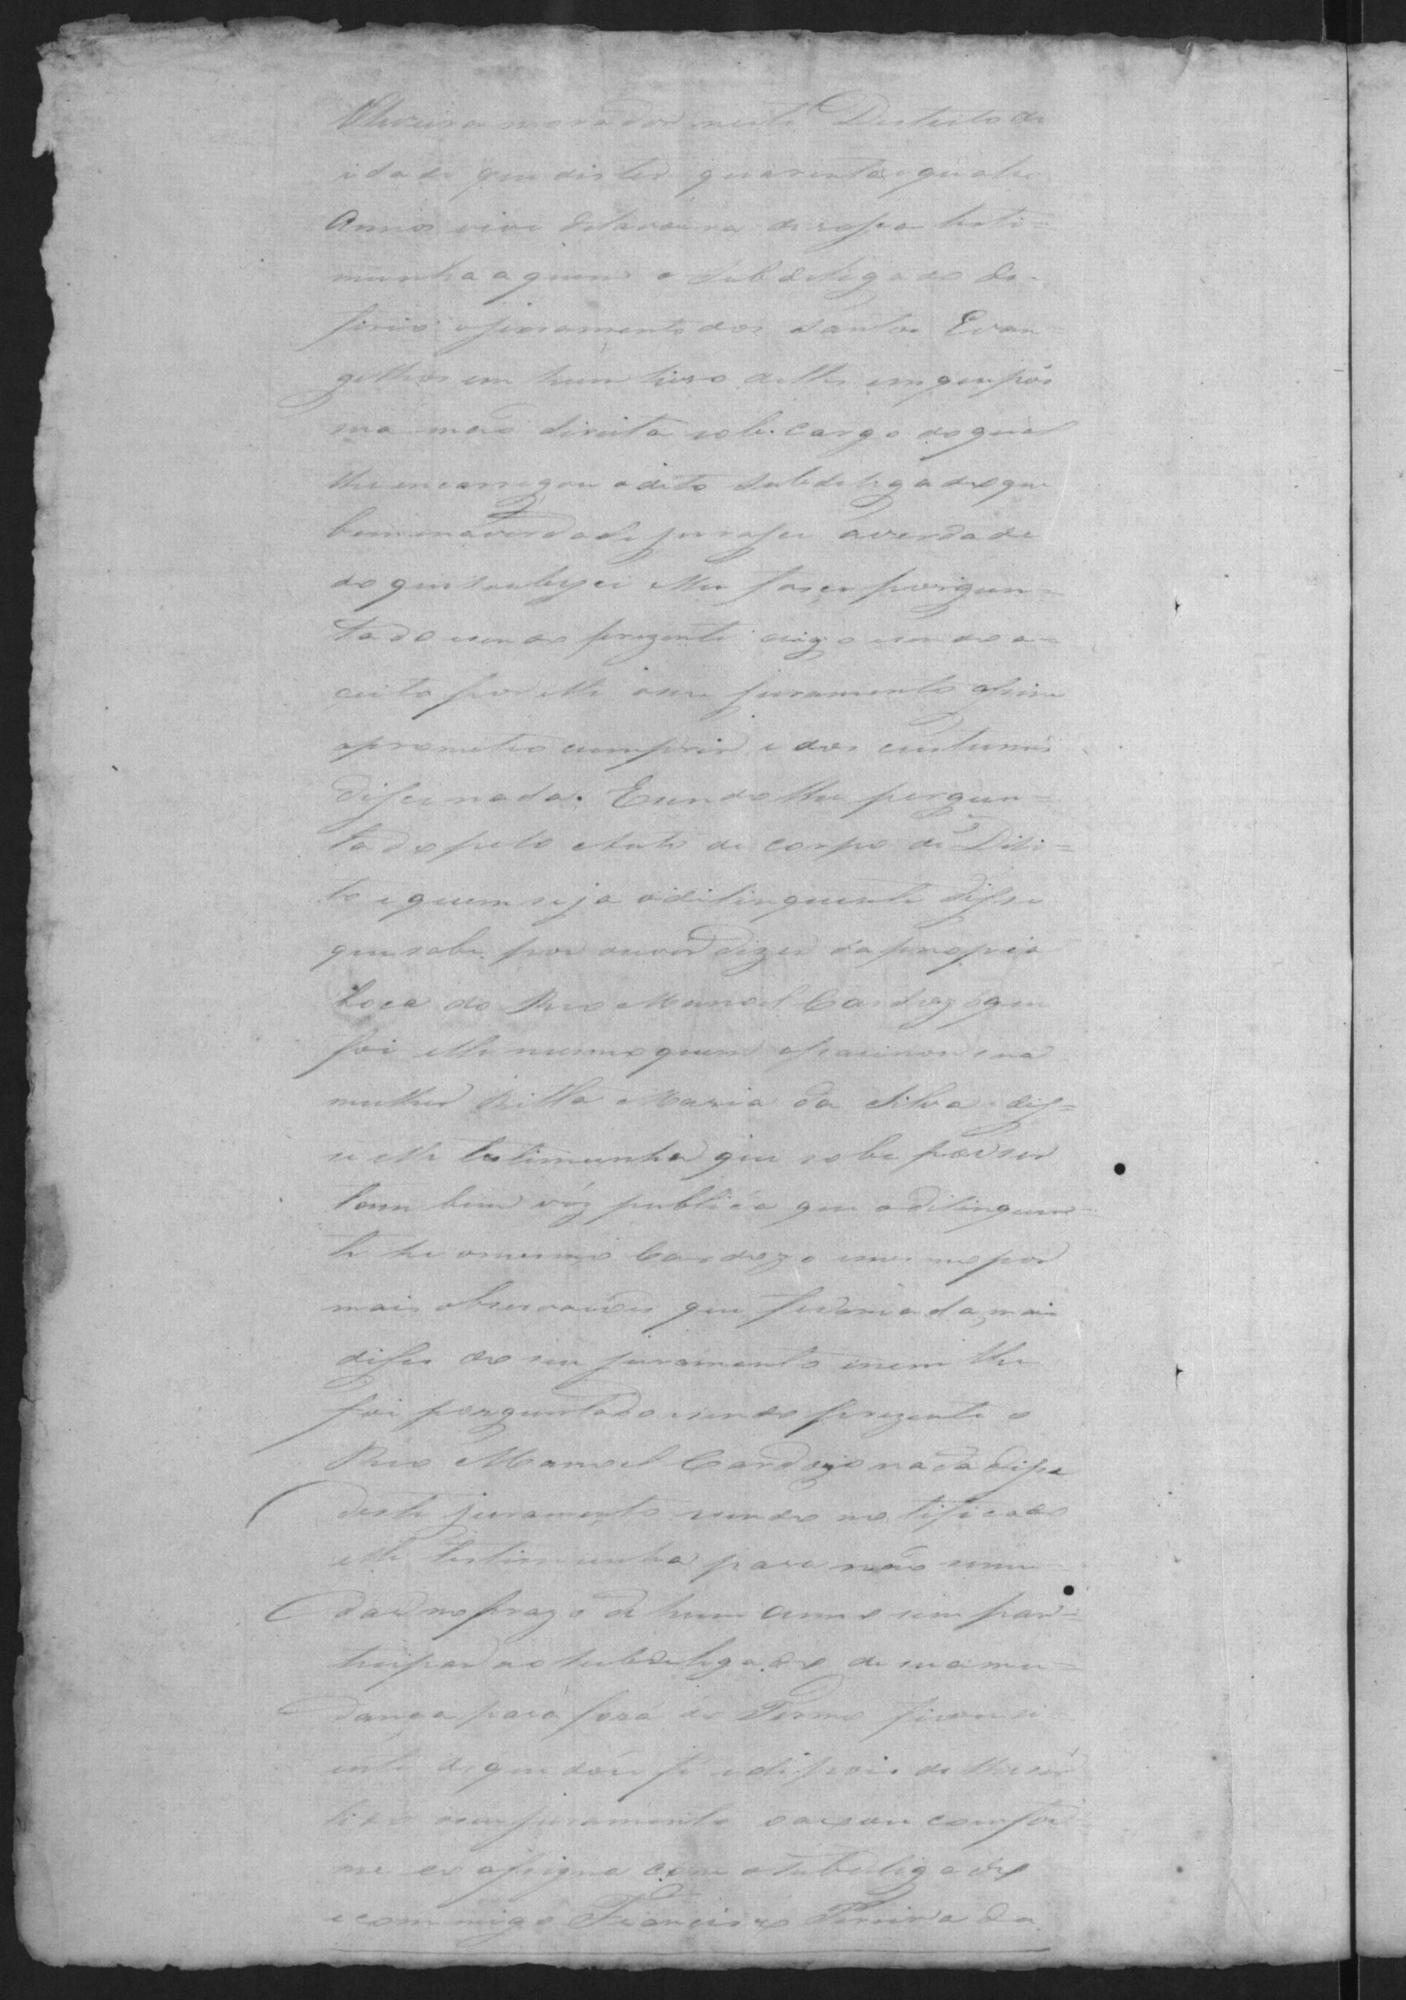 Oliveira morador neste Destricto de
idade que diz ter quarenta e quatro
Annos vive de lavoura de rossa testi=
munha a quem o Subdelegado de=
ferio o juramento dos Santos Evan=
gelhos em hum livro delles em que pôs
sua mão direita sob cargo do qual
lhe encarregou o dito Subdelegado que
bem na verdade jurasse a verdade
do que soubesse e lhe fosse pergun=
tado sendo prezente digo sendo a=
ceito por elle o seu juramento assim
o prometeo cumprir e dos custumes
disse nada. E sendo lhe pergun=
tado pelo Auto de corpo de Dili=
to e quem seja o dilinquente disse
que sabe por ouvir dizer da propria
boca do Reo Manoel Cardozo que
foi elle mesmo quem assacinou sua
mulher Ritta Maria da Silva dis=
se elle testimunha que sabe por ser
tam bem vóz publica que o dilinquen=
te he o mesmo Cardozo e mesmo por
mais observacões que
disse do seu juramento e nem lhe
foi perguntado e sendo prezente o
Reo Manoel Cardozo nada disse
deste juramento sendo notificado
elle testimunha para não mu=
dar no prazo de hum anno sem par=
ticipar ao Subdelegado de sua mu=
dança para fora do Termo ficou si=
ente do que dou fé e depois de lhe ser
lido o seu juramento o axou confor
me e o assigna com o Subdeligado
e com migo Francisco Pereira da